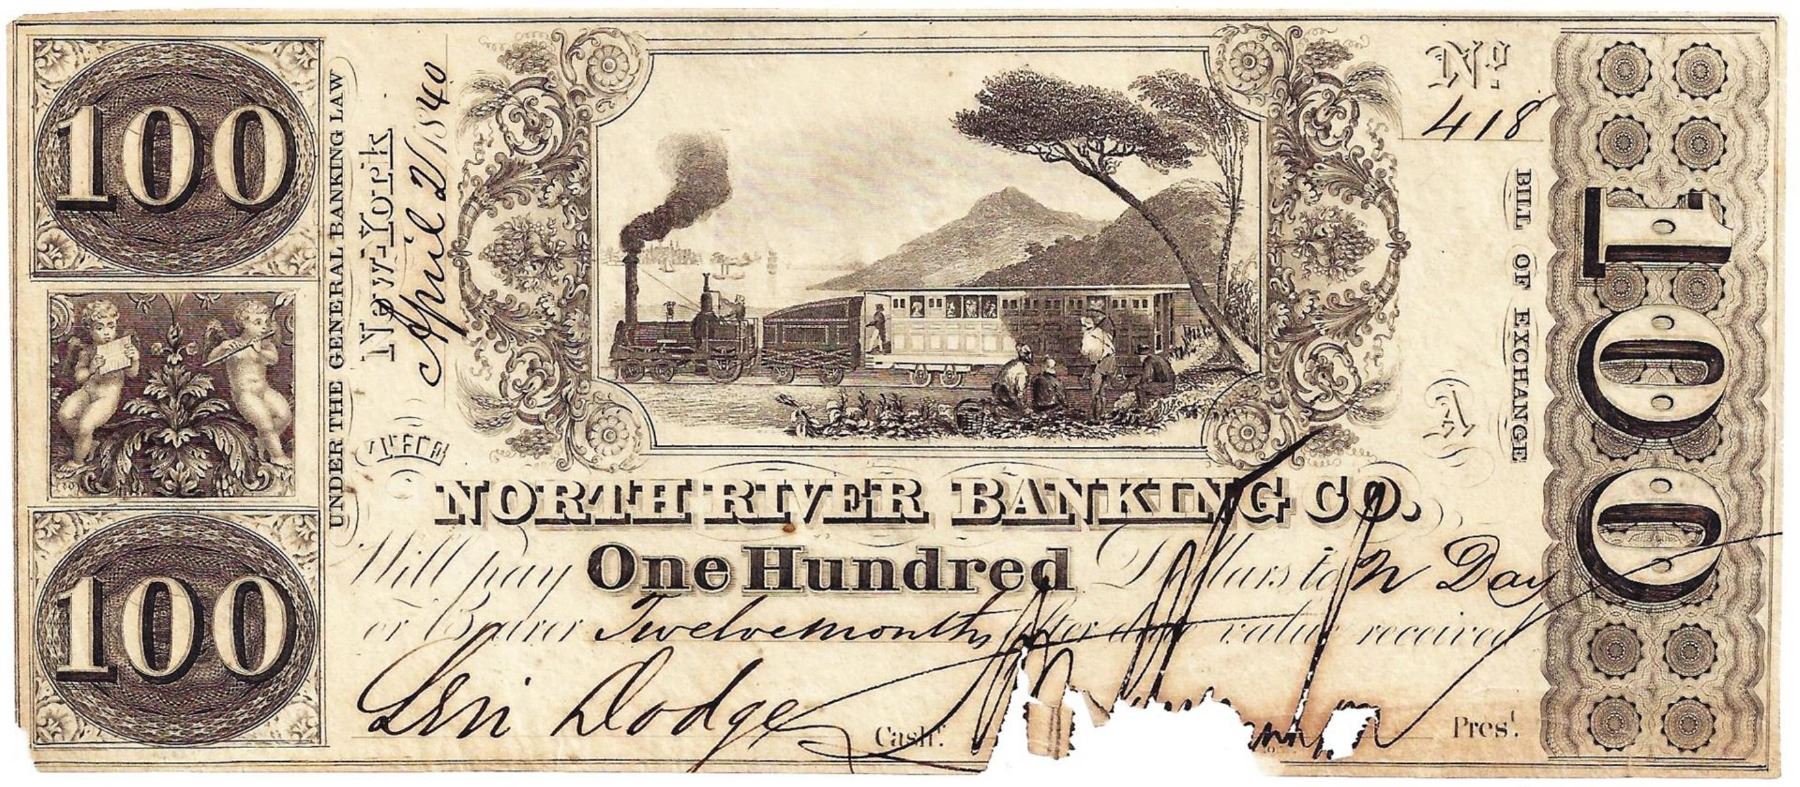 100
100
UNDER THE GENERAL BANKING LAW
New-York
April 2/1840
No.
418
BILL OF EXCHANGE
A
100
NORTH RIVER BANKING CO.
Will pay One Hundred Dollars to N Day
or Bearer Twelve months after date value received
Levi Dodge Cashr. Prest.